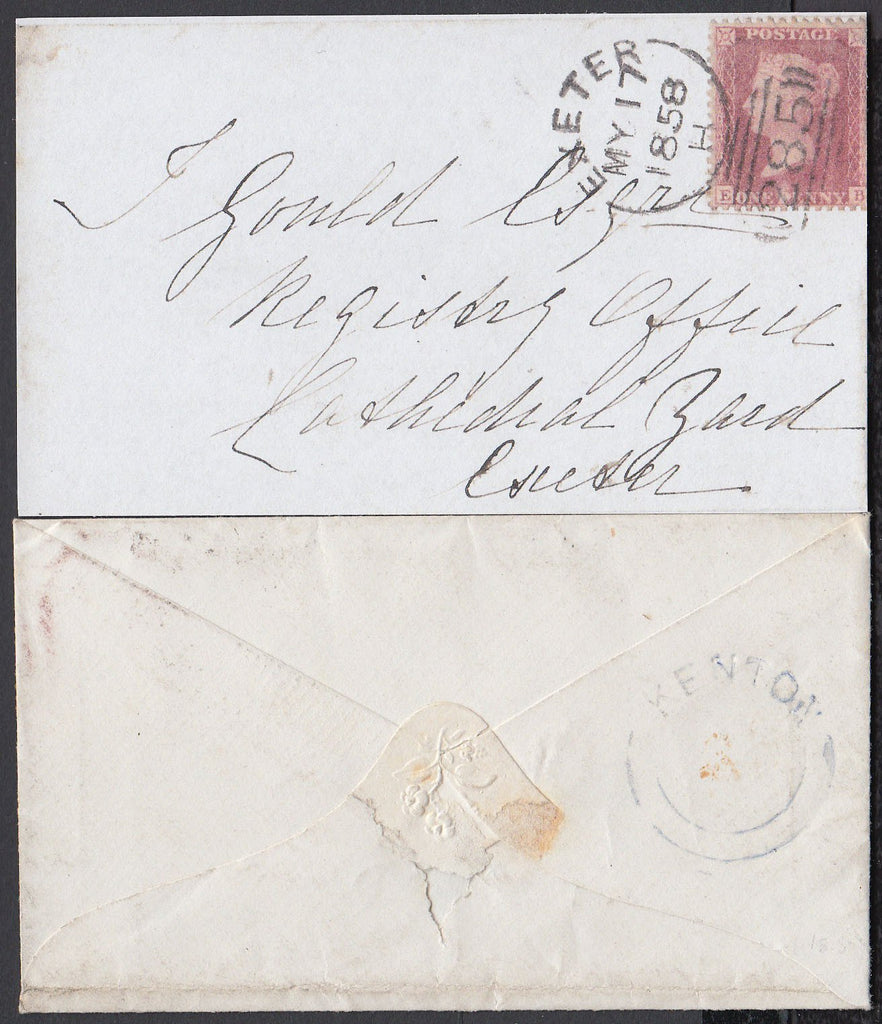 EXETER
MY 17
1858
H
POSTAGE
285
E ONE PENNY
J Gould Esqr
Registry Office
Cathedral Yard
Exeter
KENTON